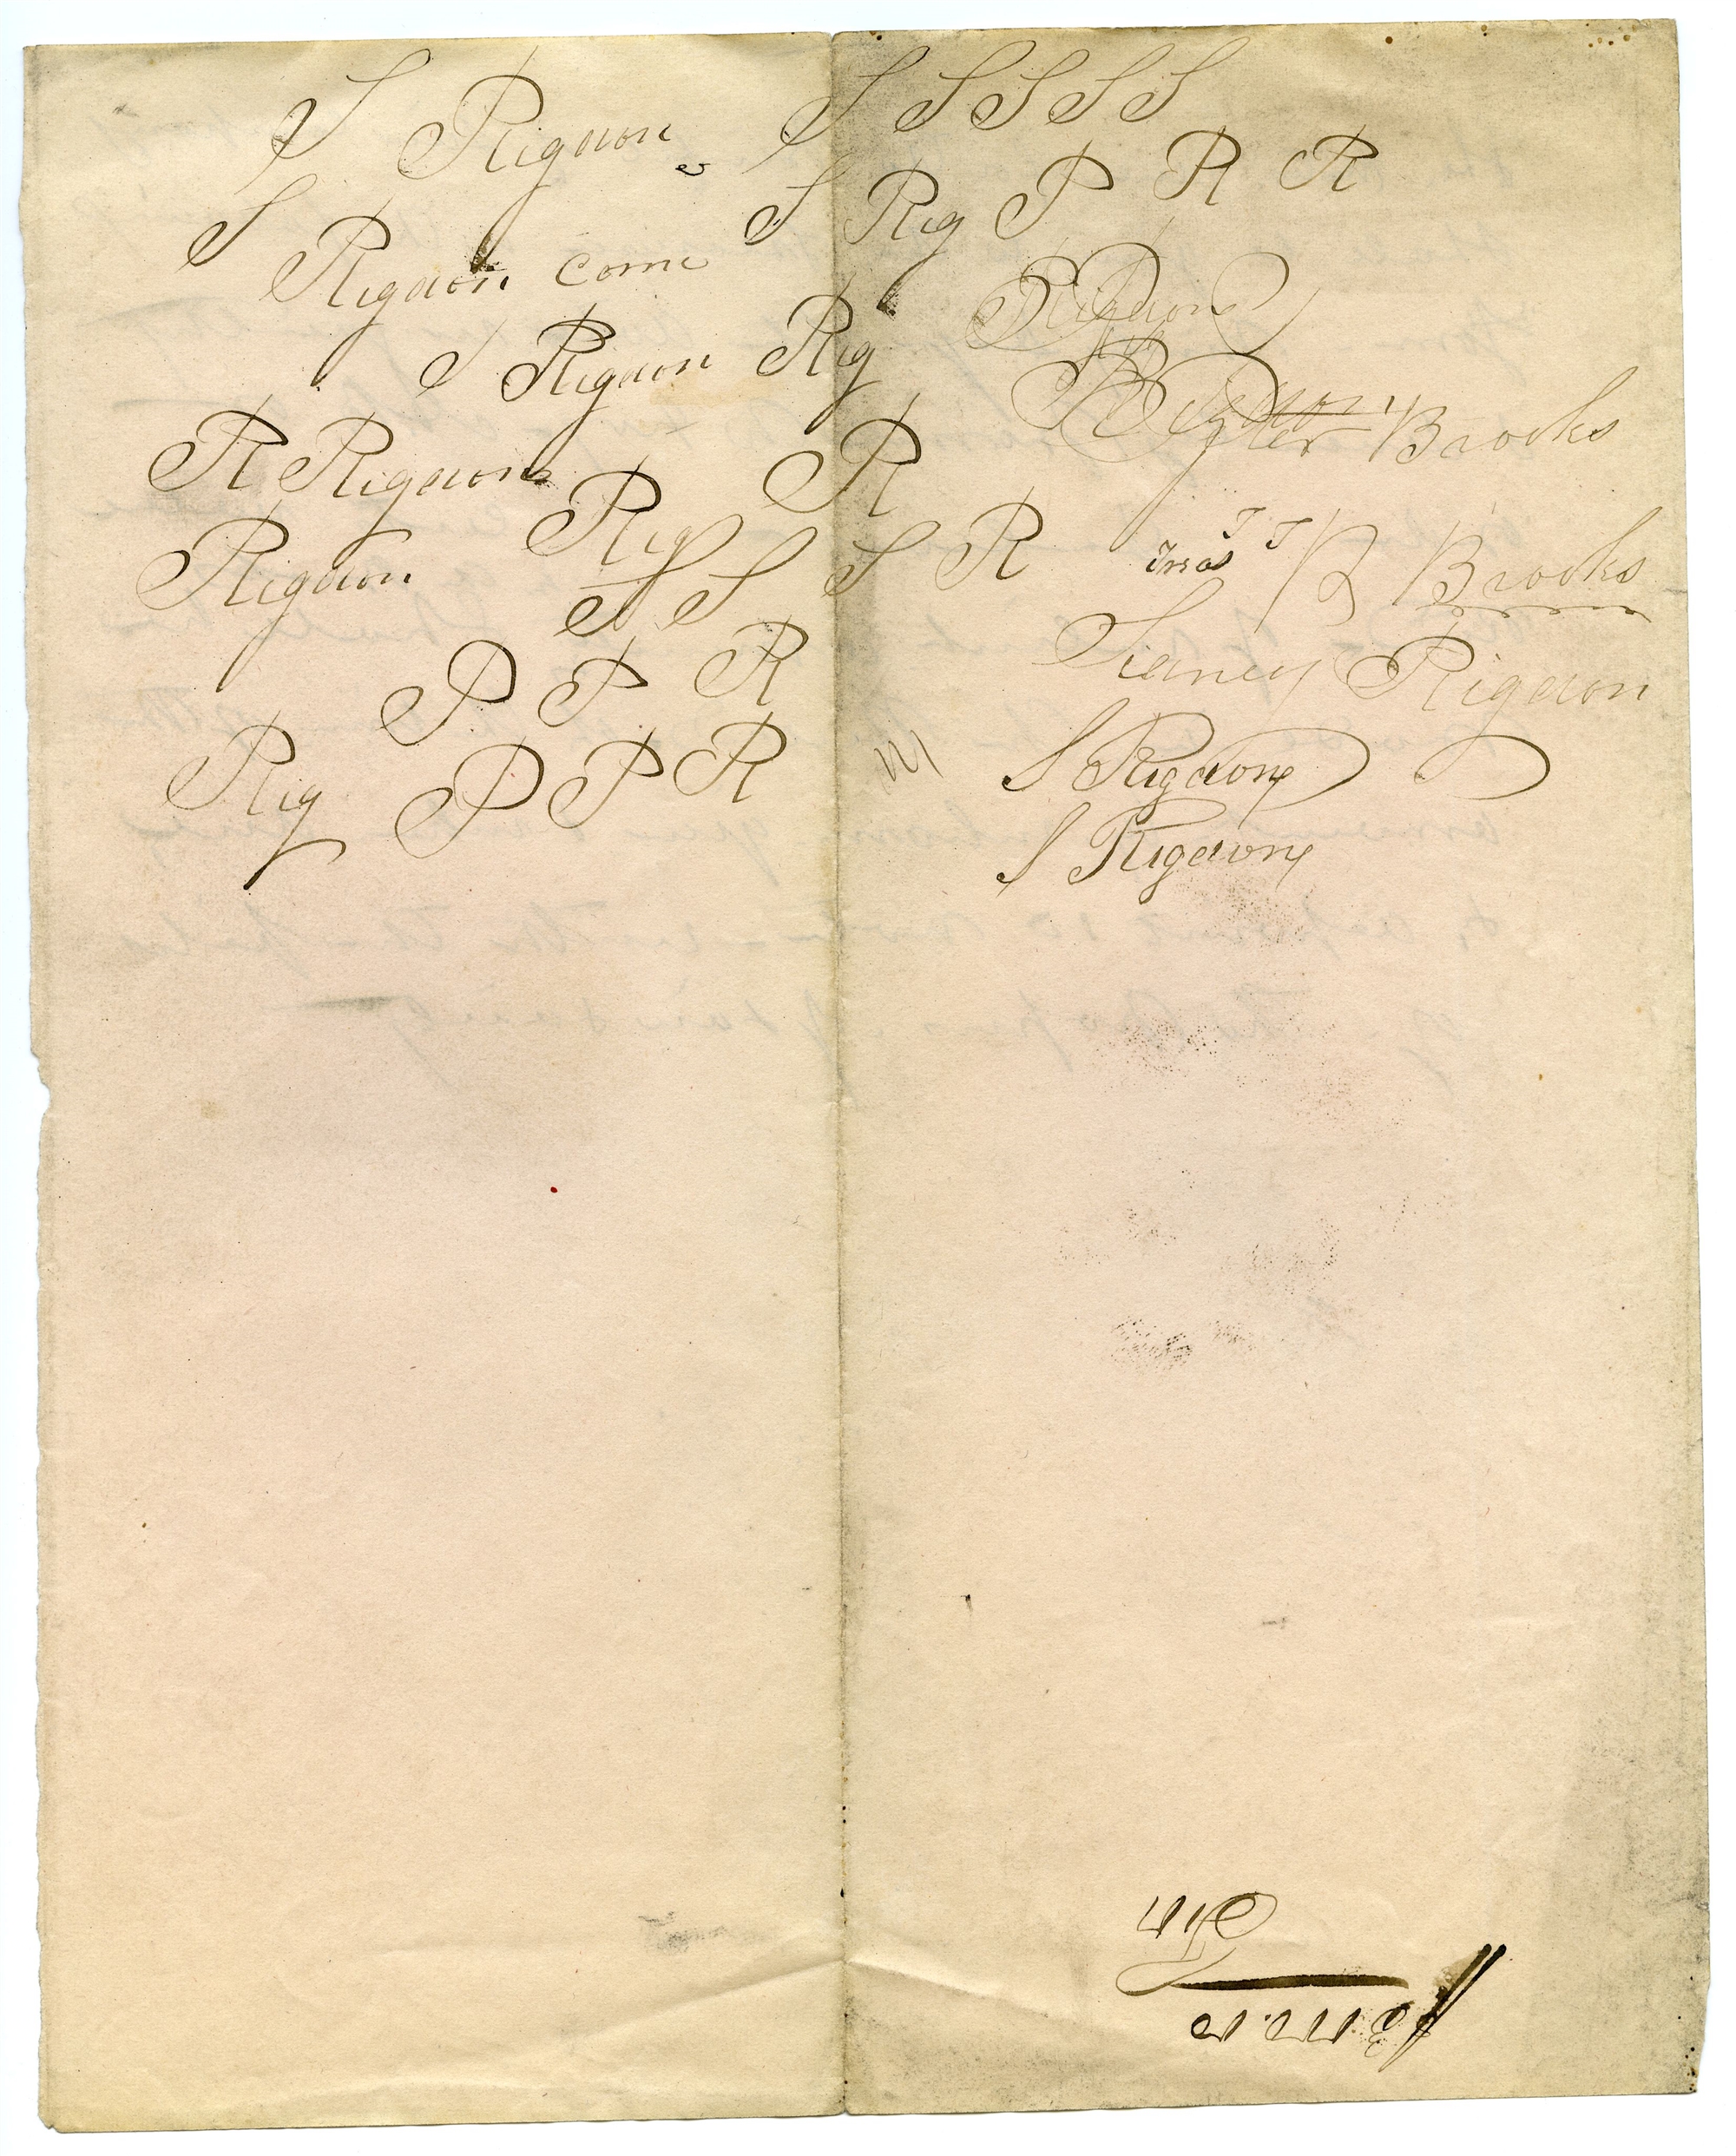 S Rigdon S S S S S
S Rigdon come S Rig P R R
S Rigdon Rig Rigdon
R Rigdon R Rigdon Brooks
Rigdon Rig S S S R B Brooks
Sidney Rigdon
P P R
Rig P P R S Rigdon
S Rigdon